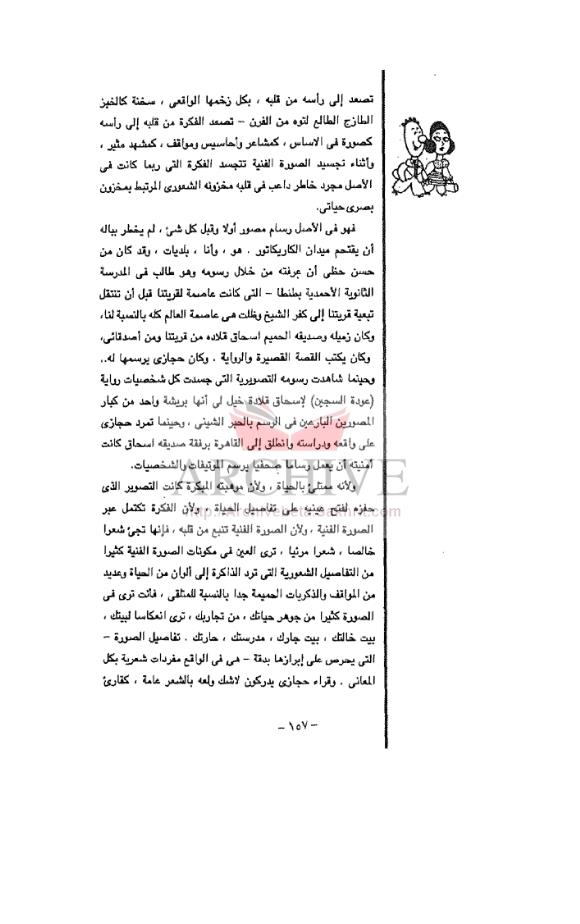 تصعد إلى رأسه من قلبه ، بكل زخمها الواقعى ، سخنة كالخبز
الطازج الطالع لتوه من الفرن – تصعد الفكرة من قلبه إلى رأسه
كصورة فى الاساس ، كمشاعر وأحاسيس ومواقف ، كمشهد مثير ،
وأثناء تجسيد الصورة الفنية تتجسد الفكرة التى ربما كانت فى
الأصل مجرد خاطر داعب فى قلبه مخزونه الشعورى المرتبط بمخزون
بصرى حياتى.
فهو فى الأصل رسام مصور أولا وقبل كل شئ ، لم يخطر بباله
أن يقتحم ميدان الكاريكاتور . هو ، وأنا ، بلديات ، وقد كان من
حسن حظى أن عرفته من خلال رسومه وهو طالب فى المدرسة
الثانوية الأحمدية بطنطا – التى كانت عاصمة لقريتنا قبل أن تنتقل
تبعية قريتنا إلى كفر الشيخ وظلت هى عاصمة العالم كله بالنسبة لنا،
وكان زميله وصديقه الحميم اسحاق قلاده من قريتنا ومن أصدقائى،
وكان يكتب القصة القصيرة والرواية . وكان حجازى يرسمها له..
وحينما شاهدت رسومه التصويرية التى جسدت كل شخصيات رواية
(عودة السجين) لإسحاق قلادة خيل لى أنها بريشة واحد من كبار
المصورين البارعين فى الرسم بالحبر الشينى ، وحينما تمرد حجازى
على واقعه ودراسته وانطلق إلى القاهرة برفقة صديقه اسحاق كانت
أمنيته أن يعمل رساما صحفيا يرسم الموتيفات والشخصيات.
ولأنه ممتلئ بالحياة ، ولأن موهبته المبكرة كانت التصوير الذى
حفزه لفتح عينيه على تفاصيل الحياة ، ولأن الفكرة تكتمل عبر
الصورة الفنية ، ولأن الصورة الفنية تنبع من قلبه ، فإنها تجئ شعرا
خالصا ، شعرا مرئيا ، ترى العين فى مكونات الصورة الفنية كثيرا
من التفاصيل الشعورية التى ترد الذاكرة إلى ألوان من الحياة وعديد
من المواقف والذكريات الحميمة جدا بالنسبة للمتلقى ، فأنت ترى فى
الصورة كثيرا من جوهر حياتك ، من تجاربك ، ترى انعكاسا لبيتك ،
بيت خالتك ، بيت جارك ، مدرستك ، حارتك . تفاصيل الصورة –
التى يحرص على إبرازها بدقة – هى فى الواقع مفردات شعرية بكل
المعانى . وقراء حجازى يدركون لاشك ولعه بالشعر عامة ، كقارئ
– ١٥٧ –
ARCHIVE